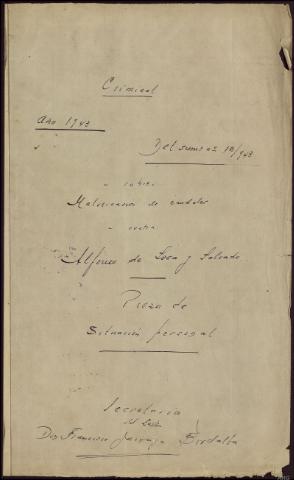 Criminal
Año 1943
Del sumario 10/943
sobre
Malversación de caudales
contra
Alfonso de Sosa y Salcedo
Pieza de
Situación personal
Secretaria
del Lcdo.
Don Francisco